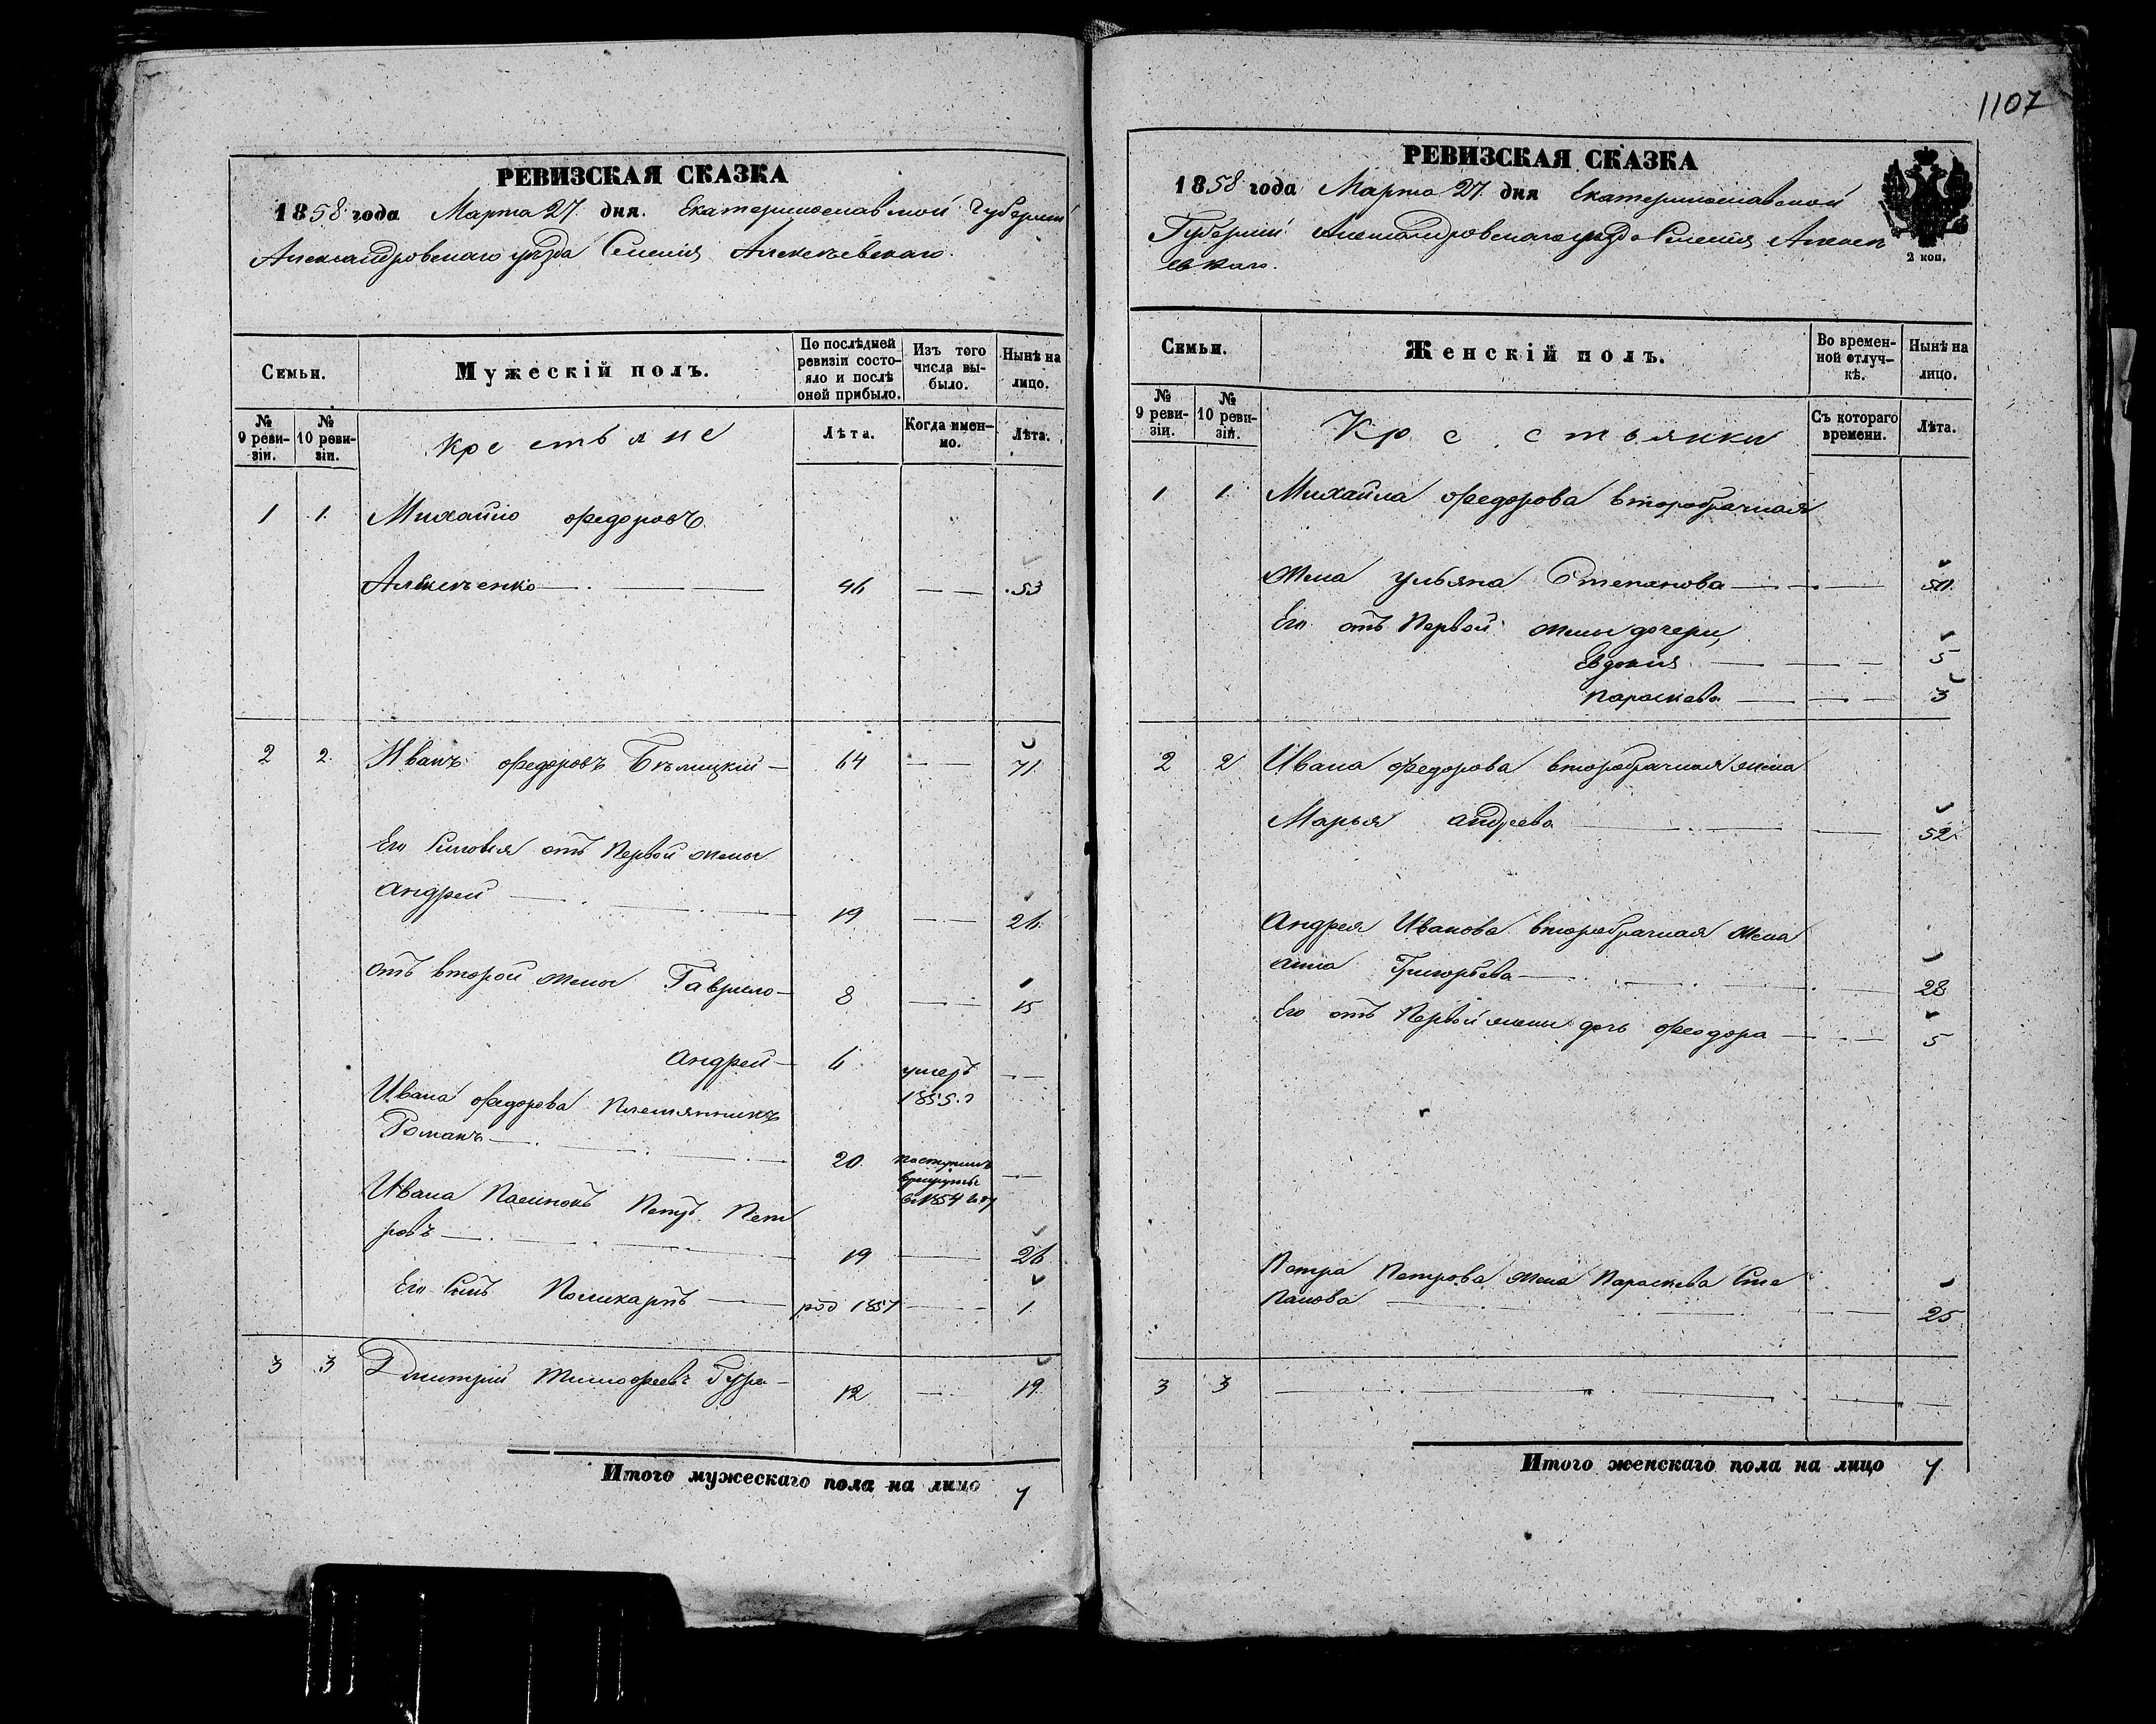 РЕВИЗСКАЯ СКАЗКА
1858 года Марта 27 дня. Екатеринославской Губернии
Александровскаго уѣзда Селенія Алексѣевскаго.
Семьи.
Мужескій полъ.
По послѣдней ревизіи состояло и послѣ оной прибыло.
Изъ того числа выбыло.
Нынѣ на лицо.
№ 9 ревизіи.
№ 10 ревизіи.
Крестьяне
Лѣта.
Когда именно.
Лѣта.
1 1. Михайло Федоровъ
Алексѣенко 46 53
2 2. Иванъ Федоровъ Бѣлицкій 64 71
Его Сыновья отъ Первой жены
Андрей 19 26
отъ второй жены Гаврило 8 15
Андрей 6 умеръ
1855 г
Ивана Федорова Племянникъ
Романъ 20 поступилъ
врекруты
въ 1854 году
Ивана Пасынокъ Петръ Пет
ровъ 19 26
Его Сынъ Поликарпъ род 1857 1
3 3 Дмитрій Тимофеевъ Гура 12 19
Итого мужескаго пола на лицо 7
1107
РЕВИЗСКАЯ СКАЗКА
1858 года Марта 27 дня Екатеринославской
Губерніи Александровскаго уѣзда Селенія Алексѣ
евскаго.
2 коп.
Семьи.
Женскій полъ.
Во временной отлучкѣ.
Нынѣ на лицо.
№ 9 ревизіи.
№ 10 ревизіи.
Крестьянки
Съ котораго времени.
Лѣта.
1 1. Михайла Федорова второбрачная
жена Ульяна Степанова 50
Его отъ Первой жены дочери,
Евдокия 5
Параскева 3
2 2 Ивана Федорова второбрачная жена
Марья Андреева 52
Андрея Иванова второбрачная жена
Анна Григорьева 28
Его отъ Первой жены дочь Феодора 5
Петра Петрова жена Параскева Сте
панова 25
3 3
Итого женскаго пола на лицо 7